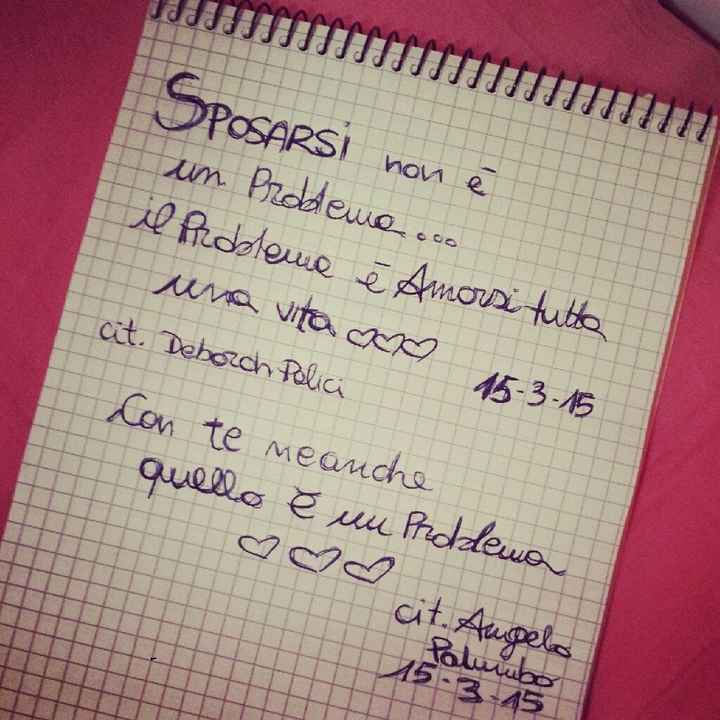 SPOSARSI non è
un Problema...
il Problema è Amarsi tutta
una vita ♡♡♡
cit. Deborah Polici
15-3-15
Con te neanche
quello è un Problema
♡ ♡ ♡
cit. Angelo
Palumbo
15-3-15